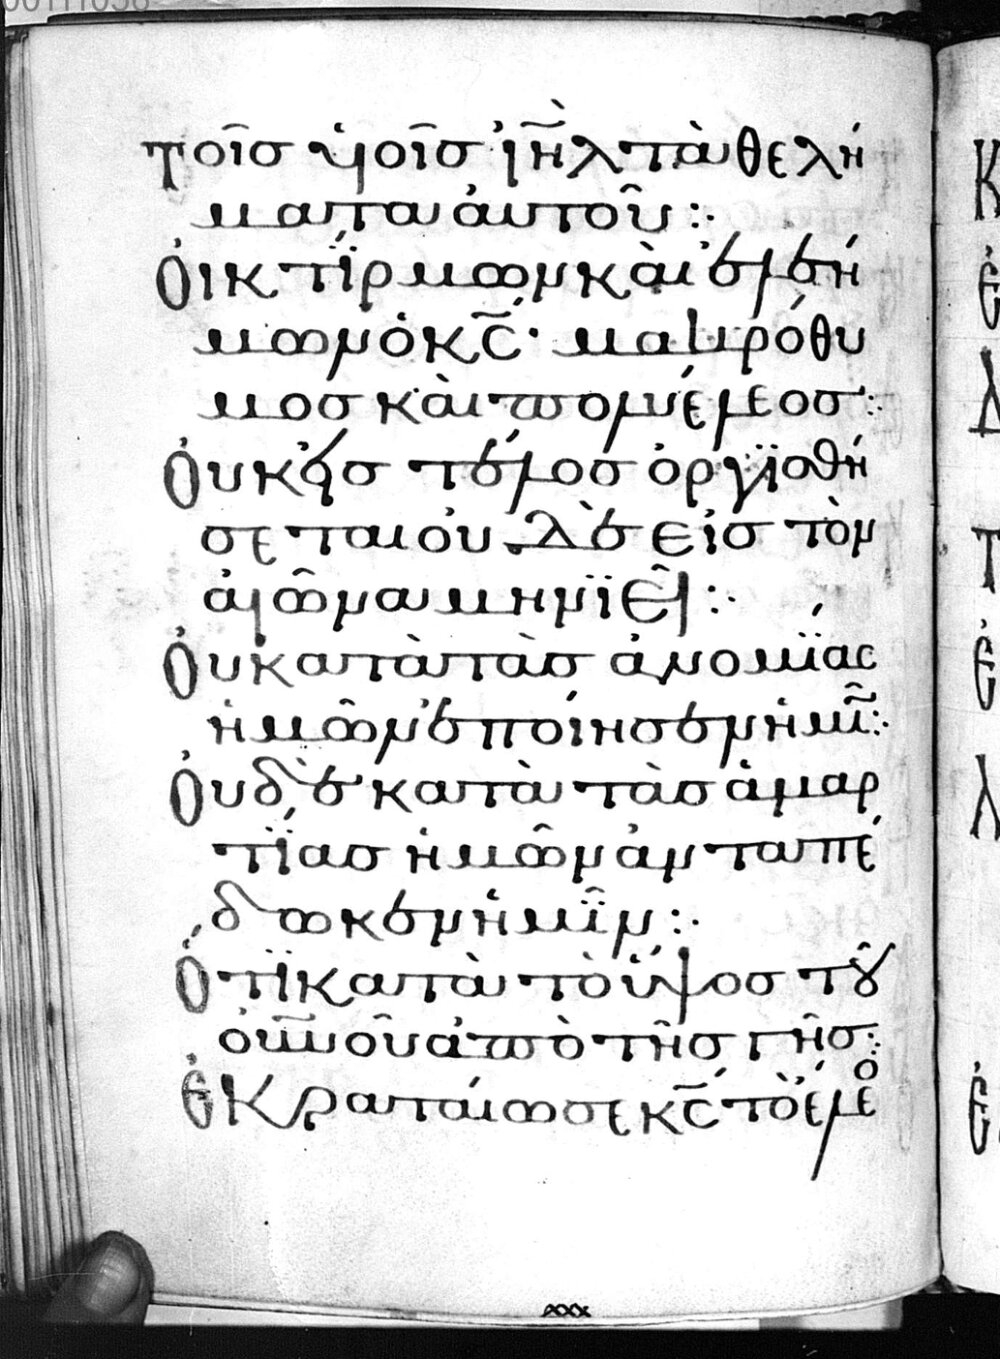 τοῖσ ὑϊοῖσ ἰη̃λ τὰ θελή
ματα ἀυτοῦ :·
Ὀικτΐρμων κὰι ἐλεή
μων ὁ κ̅ς· μακρόθυ
μοσ κὰι πολυέλεοσ :·
Ὀυκ ἐισ τέλοσ ὀργϊσθή
σεται ὀυδὲ εἰσ τὸν
ἀιῶνα μηνϊεῖ :·
Ὀυ κατὰ τὰσ ἀνομΐας
ἡμῶν ἐποίησεν ἡμῖ̃ :·
Ὀυδὲ κατὰ τὰσ ἁμαρ
τΐασ ἡμῶν ἀνταπέ
δωκεν ἡμῖν :·
Ὅτϊ κατὰ τὸ ὕψοσ τοῦ
ου̅νοῦ ἀπὸ τῆσ γῆσ :·
Ἐκραταίωσε κ̅ς τὸ ἔλεο